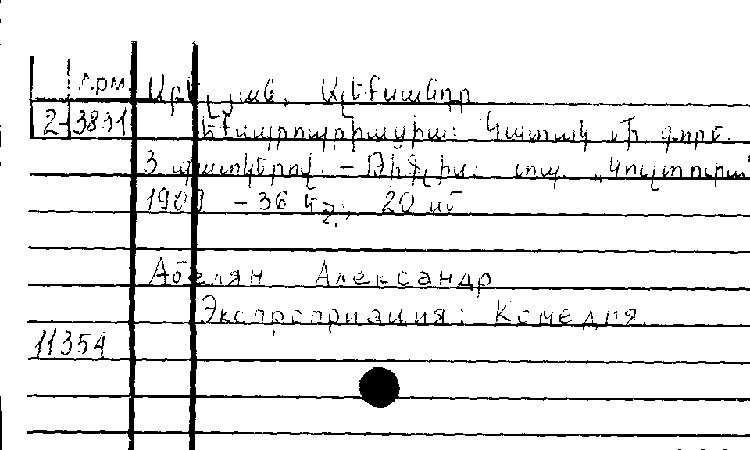 Арм
Աբելյան, Ալեքսանդր
2-3891
Էքսպրոպրիացիա: Կատակ. մի գործ.
3 պատկերով. – Թիֆլիս: տպ. „Կուլտուրա"
1909 – 36 էջ, 20 սմ
Абелян Александр
Экспроприация: Комедия
11354